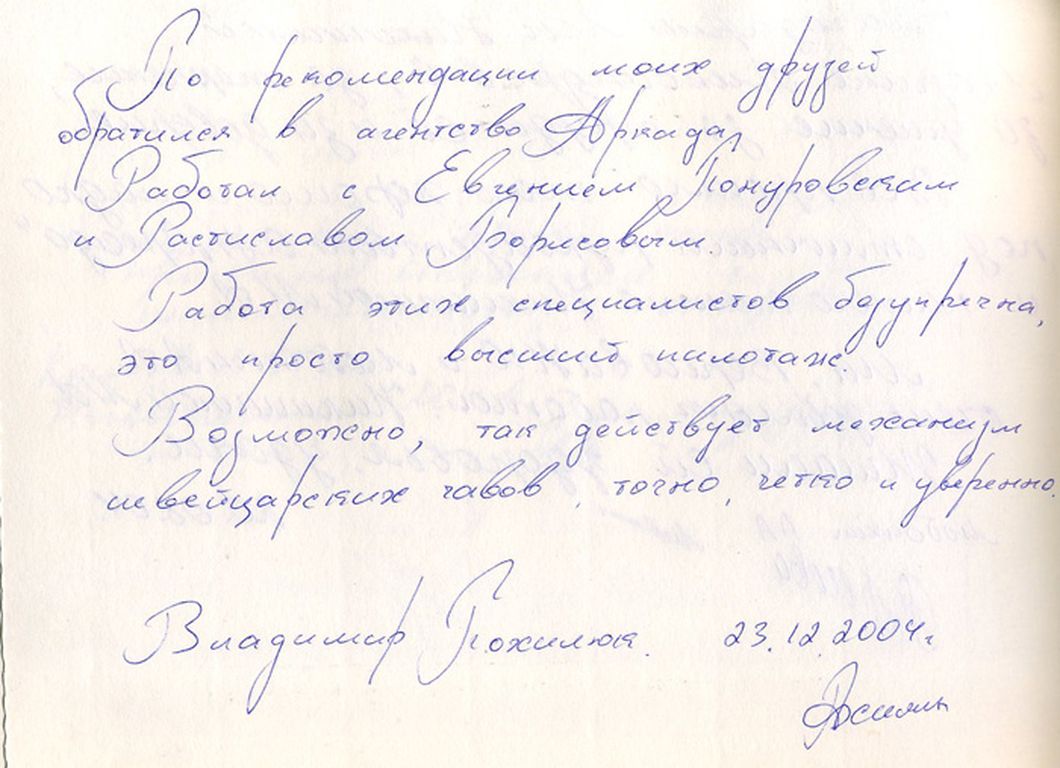 По рекомендации моих друзей
обратился в агентство Аркада,
Работал с Евгением Понуровским
и Растиславом Борисовым.
Работа этих специалистов безупречна,
это просто высший пилотаж.
Возможно, так действует механизм
швейцарских часов, точно, четко и уверенно.
Владимир Похилюк. 23.12.2004г.